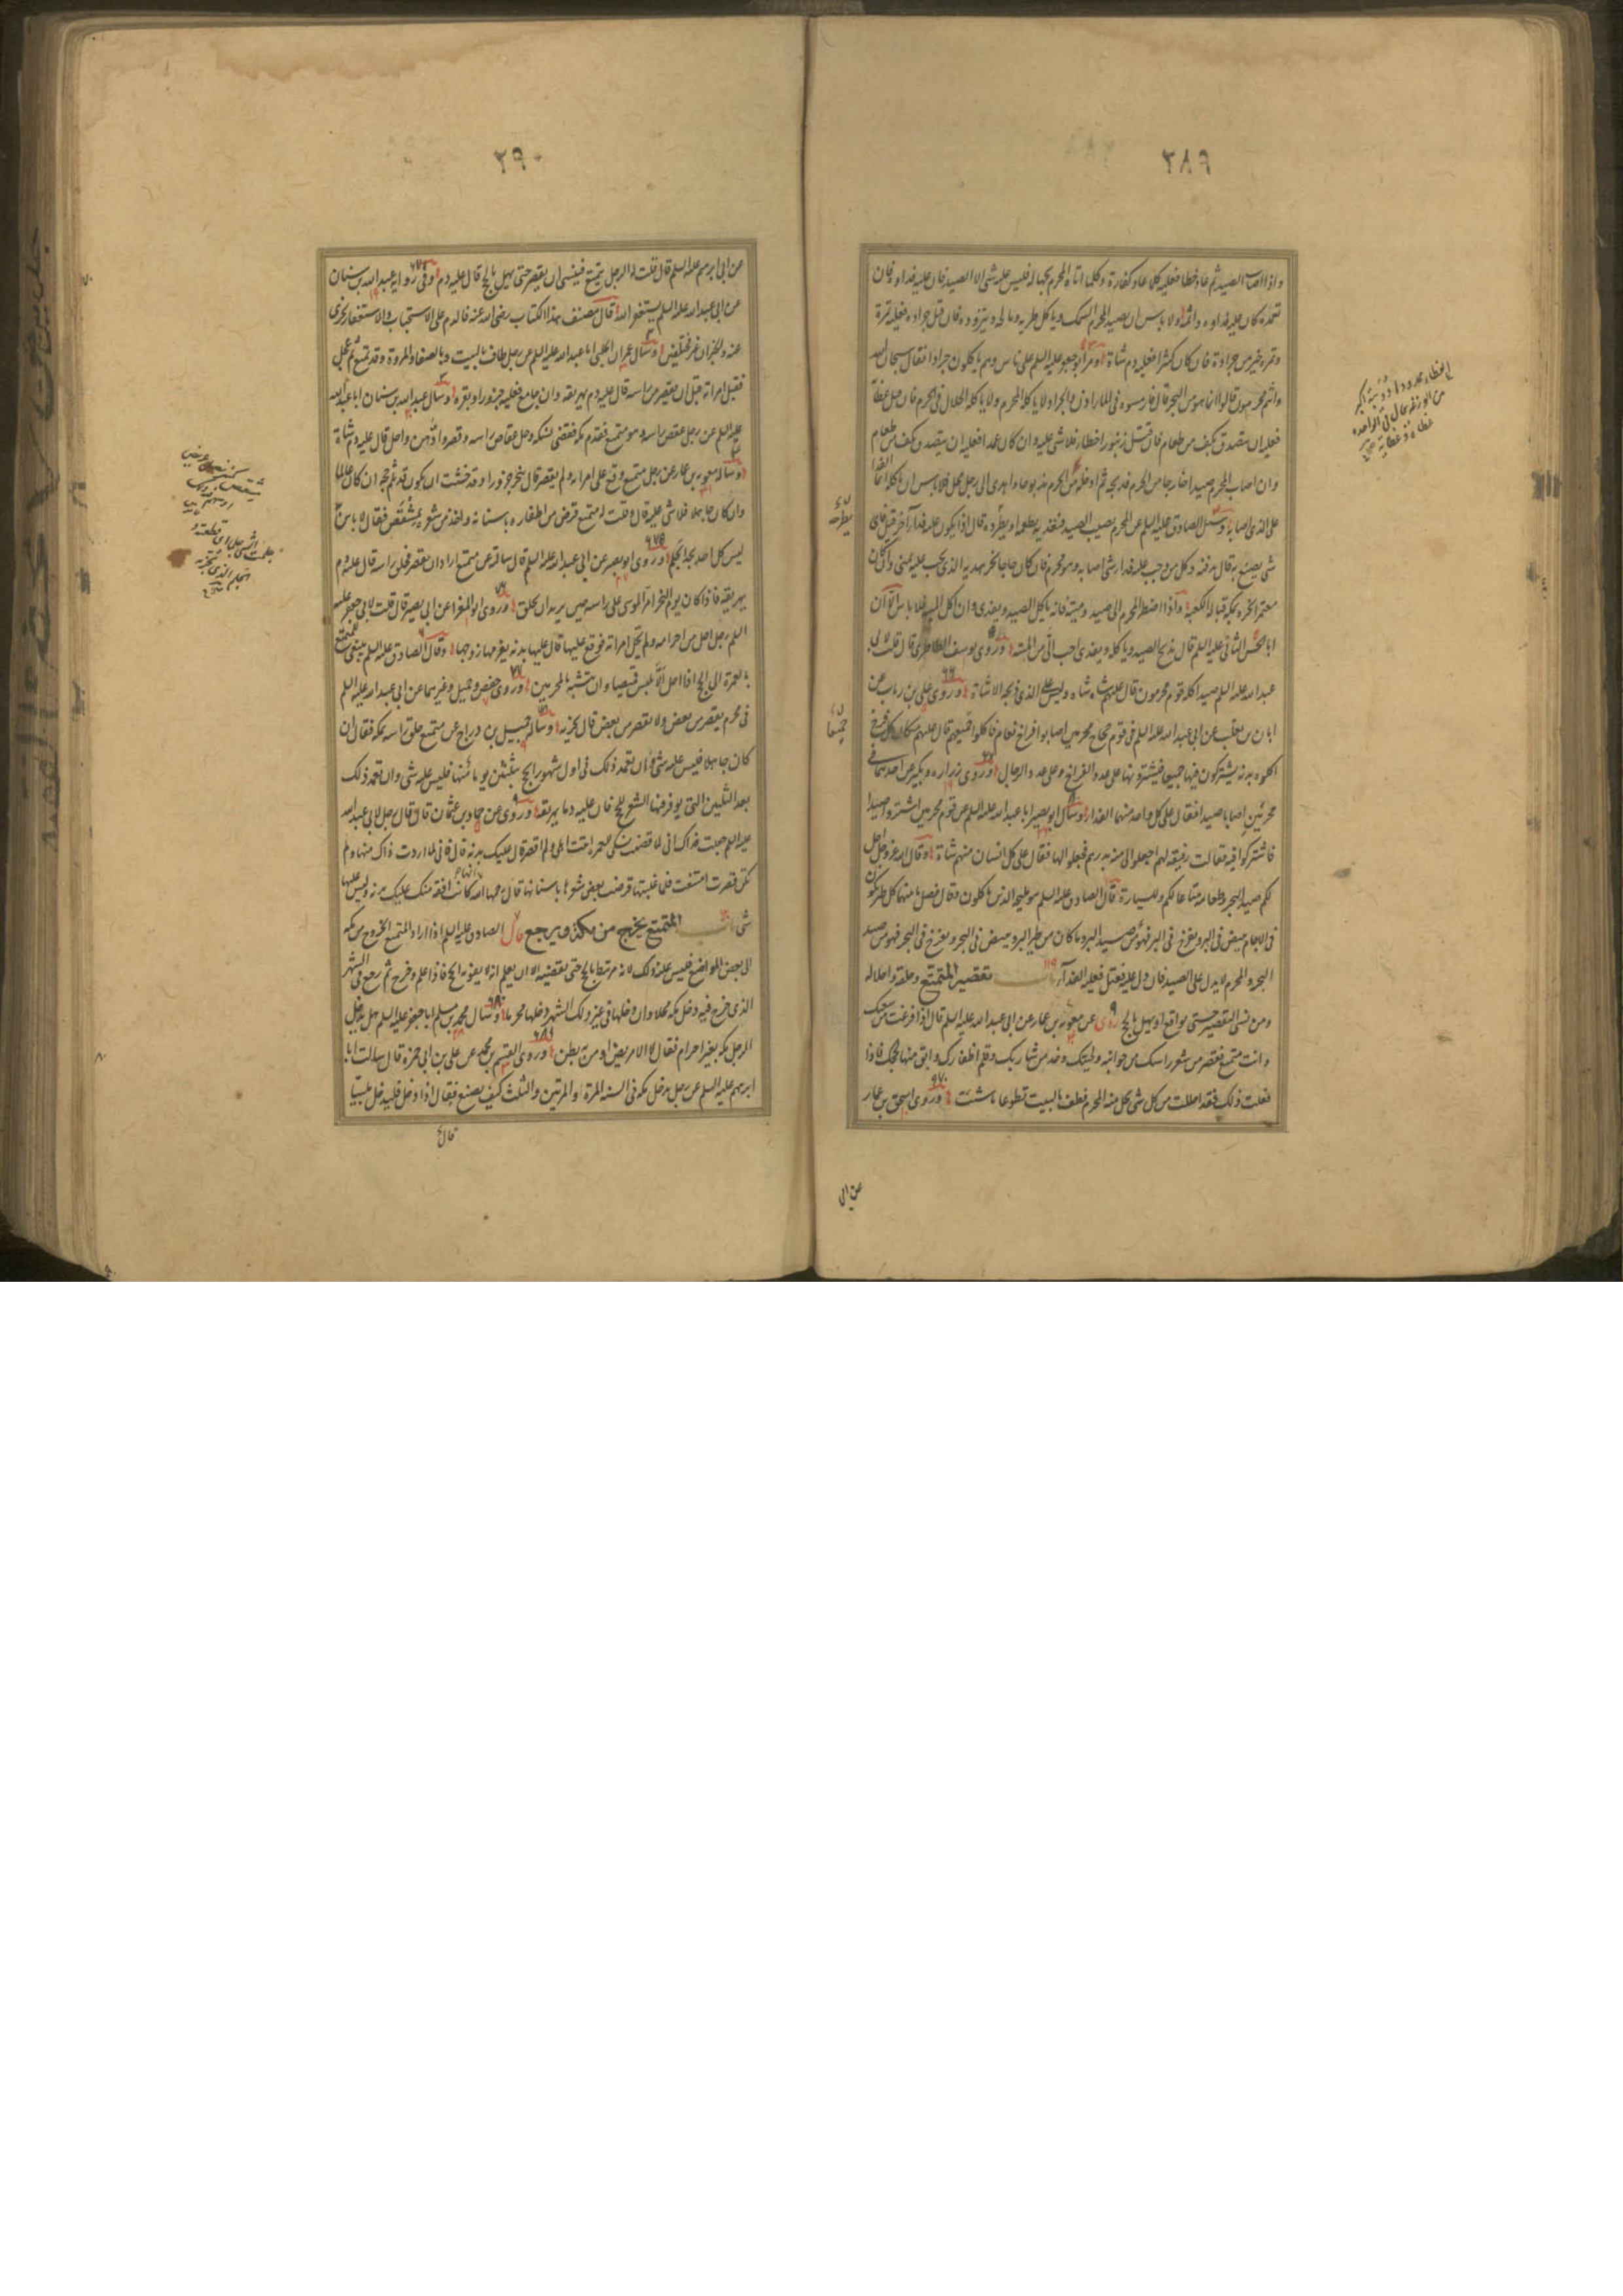 ٢٨٩
واذا اصاب الصيد ثم عاد خطا فعليه كلما عاد كفارة وكلما اتاه المحرم بجهالة فليس عليه شئ الا الصيد فان عليه فداوه فان
تعمده كان عليه فداوه واثمه ولا باس ان يصيد المحرم السمك وياكل طريه ومالحه ويتزوده فان قتل جرادة فعليه تمرة
وتمرة خير من جرادة فان كان كثيرا فعليه دم شاة ومر ابو جعفر عليه السلم على ناس وهم ياكلون جرادا فقال سبحان الله
وانتم محرمون قالوا انما هو من البحر قال فارمسوه فى الماء اذن والجراد لا ياكله المحرم ولا ياكله الحلال فى الحرم فان قتل عظاة
فعليه ان يتصدق بكف من طعام فان قتل زنبورا خطا فلا شئ عليه وان كان عمدا فعليه ان يتصدق بكف من طعام
وان اصاب المحرم صيدا خارجا من الحرم فذبحه ثم ادخله الحرم مذبوحا واهدى الى رجل محل فلا باس ان ياكله انما الفدا
على الذى اصابه وسئل الصادق عليه السلم عن المحرم يصيب الصيد فيفديه يطعمه او يطرحه قال اذا يكون عليه فداء آخر قيل فاى
شئ يصنع به قال يدفنه وكل من وجب عليه فداء شئ اصابه وهو محرم فان كان حاجا نحر هديه الذى يجب عليه بمنى وان كان
معتمرا نحره بمكة قبالة الكعبة واذا اضطر المحرم الى صيد وميتة فانه ياكل الصيد ويفدى وان اكل الميتة فلا باس الا ان
ابا الحسن الثانى عليه السلم قال يذبح الصيد وياكله ويفدى احب الى من الميتة وروى يوسف الطاطرى قال قلت لابى
عبد الله عليه السلم صيد اكله قوم محرمون قال عليهم شاة شاة وليس على الذى ذبحه الا شاة وروى على بن رئاب عن
ابان بن تغلب عن ابى عبد الله عليه السلم فى قوم حجاج محرمين اصابوا افراخ نعام فاكلوا جميعهم قال عليهم مكان كل فرخ
اكلوه بدنة يشتركون فيها جميعا فيشترونها على عدد الفراخ وعلى عدد الرجال وروى زرارة وبكير عن احدهما فى
محرمين اصابا صيدا فقال على كل واحد منهما الفداء وسال ابو بصير ابا عبد الله عليه السلم عن قوم محرمين اشتروا صيدا
فاشتركوا فيه فقالت رفيقة لهم اجعلوا لى منه بدرهم فجعلوا لها فقال على كل انسان منهم شاة وقال الله عز وجل احل
لكم صيد البحر وطعامه متاعا لكم وللسيارة قال الصادق عليه السلم هو مليحه الذين ياكلون وقال فصل ما بينهما كل طير يكون
فى الاجام يبيض فى البر ويفرخ فى البر فهو من صيد البر وما كان من طير البر ويبيض فى البحر ويفرخ فى البحر فهو من صيد
البحر والمحرم لا يدل على الصيد فان دل عليه فقتل فعليه الفداء باب تقصير المتمتع وحلقه واحلاله
ومن نسى التقصير حتى يواقع او يهل بالحج روى عن معوية بن عمار عن ابى عبد الله عليه السلم قال اذا فرغت من سعيك
وانت متمتع فقصر من شعر راسك من جوانبه ولحيتك وخذ من شاربك وقلم اظفارك وابق منها لحجك فاذا
فعلت ذلك فقد احللت من كل شئ يحل منه المحرم فطف بالبيت تطوعا ما شئت وروى اسحق بن عمار
عن ابى
٢٩٠
عن ابى ابرهيم عليه السلم قال قلت له الرجل يتمتع فينسى ان يقصر حتى يهل بالحج قال عليه دم وفى رواية عبد الله بن سنان
عن ابى عبد الله عليه السلم يستغفر الله قال مصنف هذا الكتاب رضى الله عنه فالدم على الاستحباب والاستغفار يجزى
عنه والخبران غير مختلفين وسال عمران الحلبى ابا عبد الله عليه السلم عن رجل طاف بالبيت وبالصفا والمروة وقد تمتع ثم عجل
فقبل امراته قبل ان يقصر من راسه قال عليه دم يهريقه وان جامع فعليه جزور او بقرة وسال عبد الله بن سنان ابا عبد الله
عليه السلم عن رجل عقص راسه وهو متمتع فقدم مكة فقضى نسكه وحل عقاص راسه وقصر وادهن واحل قال عليه دم شاة
وساله معوية بن عمار عن رجل متمتع وقع على امراته ولم يقصر قال ينحر جزورا وقد خشيت ان يكون قد ثلم حجه ان كان عالما
وان كان جاهلا فلا شئ عليه قال وقلت له متمتع قرض من اظفاره باسنانه واخذ من شعره بمشقص فقال لا باس
ليس كل احد يجد الجلم وروى ابو بصير عن ابى عبد الله عليه السلم قال سالته عن متمتع اراد ان يقصر فحلق راسه قال عليه دم
يهريقه فاذا كان يوم النحر امر الموسى على راسه حين يريد ان يحلق وروى ابو المغرا عن ابى بصير قال قلت لابى جعفر عليه
السلم رجل احل من احرامه ولم تحل امراته فوقع عليها قال عليها بدنة يغرمها زوجها وقال الصادق عليه السلم ينبغى للمتمتع
بالعمرة الى الحج اذا احل ان لا يلبس قميصا وان يتشبه بالمحرمين وروى حفص وجميل وغيرهما عن ابى عبد الله عليه السلم
فى محرم يقصر من بعض ولا يقصر من بعض قال يجزيه وساله جميل بن دراج عن متمتع حلق راسه بمكة فقال ان
كان جاهلا فليس عليه شئ وان تعمد ذلك فى اول شهور الحج بثلثين يوما منها فليس عليه شئ وان تعمد ذلك
بعد الثلثين التى يوفر فيها الشعر للحج فان عليه دما يهريقه وروى عن حماد بن عثمان قال قال رجل لابى عبد الله
عليه السلم جعلت فداك انى لما قضيت نسكى للعمرة اتيت اهلى ولم اقصر قال عليك بدنة قال فانى لما اردت ذاك منها ولم
تكن قصرت امتنعت فلما غلبتها قرضت بعض شعرها باسنانها قال رحمها الله كانت افقه منك عليك بدنة وليس عليها
شئ باب المتمتع يخرج من مكة ويرجع قال الصادق عليه السلم اذا اراد المتمتع الخروج من مكة
الى بعض المواضع فليس له ذلك لانه مرتبط بالحج حتى يقضيه الا ان يعلم انه لا يفوته الحج فاذا علم وخرج ثم رجع فى الشهر
الذى خرج فيه دخل مكة محلا وان دخلها فى غير ذلك الشهر دخلها محرما وسال محمد بن مسلم ابا جعفر عليه السلم هل يدخل
الرجل مكة بغير احرام فقال لا الا مريض او من به بطن وروى القسم بن محمد عن على بن ابى حمزة قال سالت ابا
ابرهيم عليه السلم عن رجل يدخل مكة فى السنة المرة والمرتين والثلث كيف يصنع فقال اذا دخل فليدخل ملبيا
قال